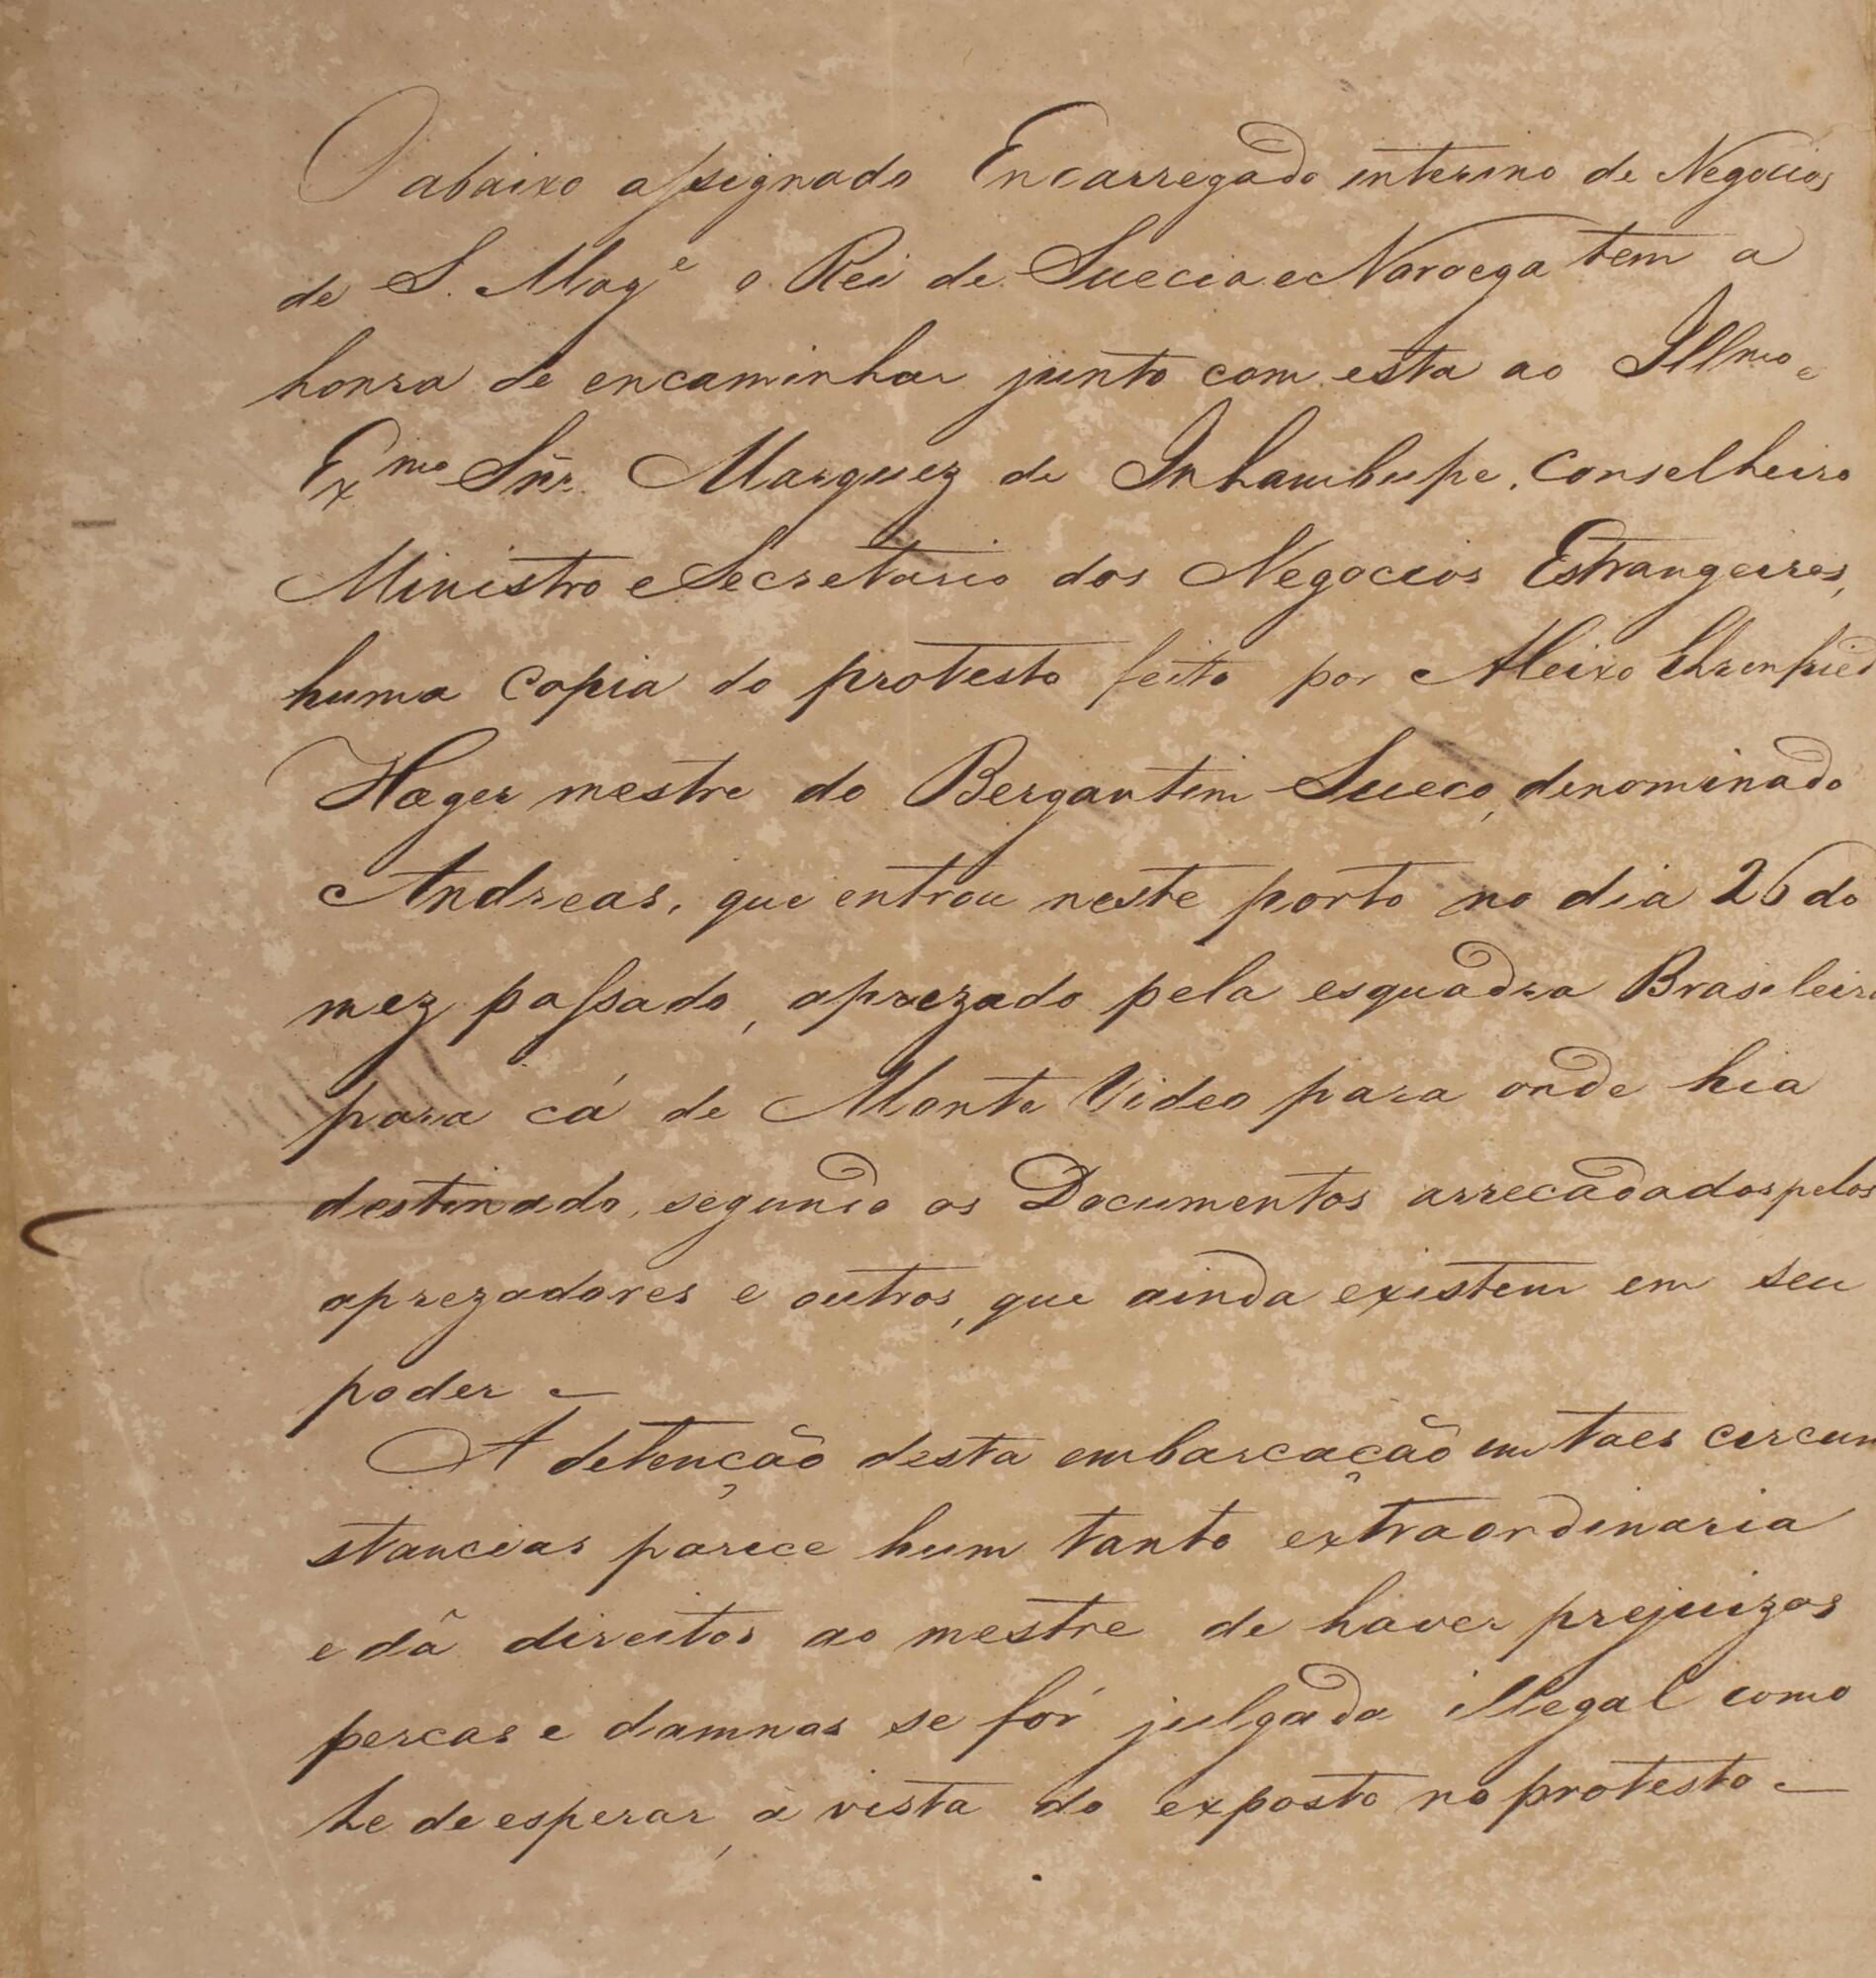 O abaixo assignado Encarregado interino de Negocios
de S. Mag.e o Rei de Suecia e Noroega tem a
honra de encaminhar junto com esta ao Illmo e
Exmo Snr. Marquez de Inhambupe, Conselheiro
Ministro e Secretario dos Negocios Estrangeiros,
huma copia do protesto feito por Aleixo Ehrenfried
Hæger mestre do Bergantim Sueco, denominado
Andreas, que entrou neste porto no dia 26 do
mez passado, aprezado pela esquadra Brasileira
para cá de Monte Video para onde hia
destinado, segundo os Documentos arrecadados pelos
aprezadores e outros, que ainda existem em seu
poder –
A detenção desta embarcação em taes circun
stancias parece hum tanto extraordinaria
e dá direitos ao mestre de haver prejuizos
percas e damnos se fôr julgada illegal como
he de esperar, á vista do exposto no protesto –